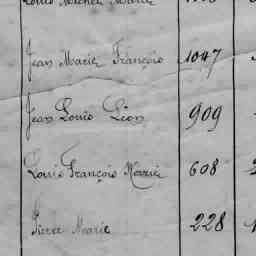 Louis Michel Marie
Jean Marie François 1047
Jean Louis Léon 909
Louis François Marie 608
Pierre Marie 228